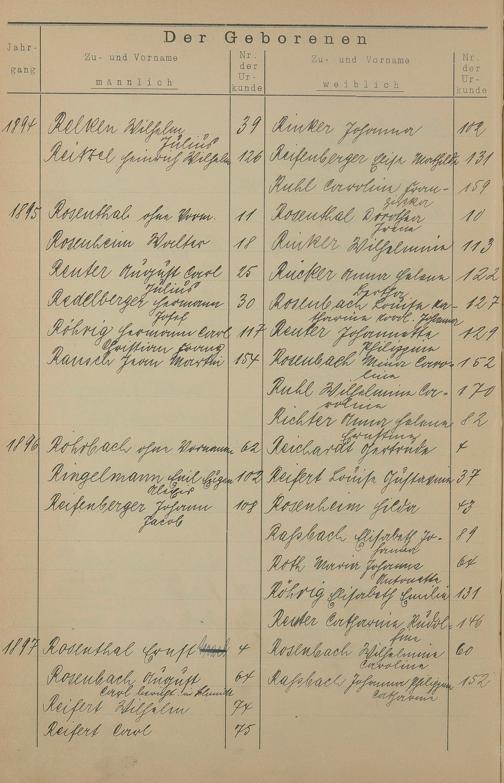 Der Geborenen
Jahr-
gang
Zu- und Vorname
männlich
Nr.
der
Ur-
kunde
Zu- und Vorname
weiblich
Nr.
der
Ur-
kunde
1894 Relken Wilhelm 39 Rinker Johanna 102
Julius
Reitzel Heinrich Wilhelm 126 Reifenberger Elise Mathilde 131
Ruhl Caroline Fran- 159
ziska
1895 Rosenthal ohne Vorn. 11 Rosenthal Dorothea 10
Irene
Rosenheim Walter 18 Rinker Wilhelmine 113
Reuter August Carl 25 Rücker Anna Helene 122
Julius Bertha
Redelberger Hermann 30 Rosenbach Louise Ka- 127
Josef tharine Johanna
Röhrig Hermann Carl 117 Reuter Johannette 129
Christian Franz Philippine
Rausch Jean Martin 154 Rosenbach Mina Caro- 152
line
Ruhl Wilhelmine Ca- 170
roline
Richter Anna Helene 82
Ernstine
1896 Rohrbach ohne Vornamen 62 Reichardt Gertrude 4
Ringelmann Emil Eugen 102 Reifert Louise Gustavine 37
Reifenberger Johann 108 Rosenheim Hilda 43
Jacob
Raßbach Elisabeth Jo- 89
hanna
Roth Maria Johanna 64
Antonette
Röhrig Elisabeth Emilie 131
Reuter Catharine Rudol- 146
fine
1897 Rosenthal Ernst 4 Rosenbach Wilhelmine 60
Caroline
Rosenbach August 64 Raßbach Johanna Philippine 152
Carl Catharine
Reifert Wilhelm 74
Reifert Carl 75